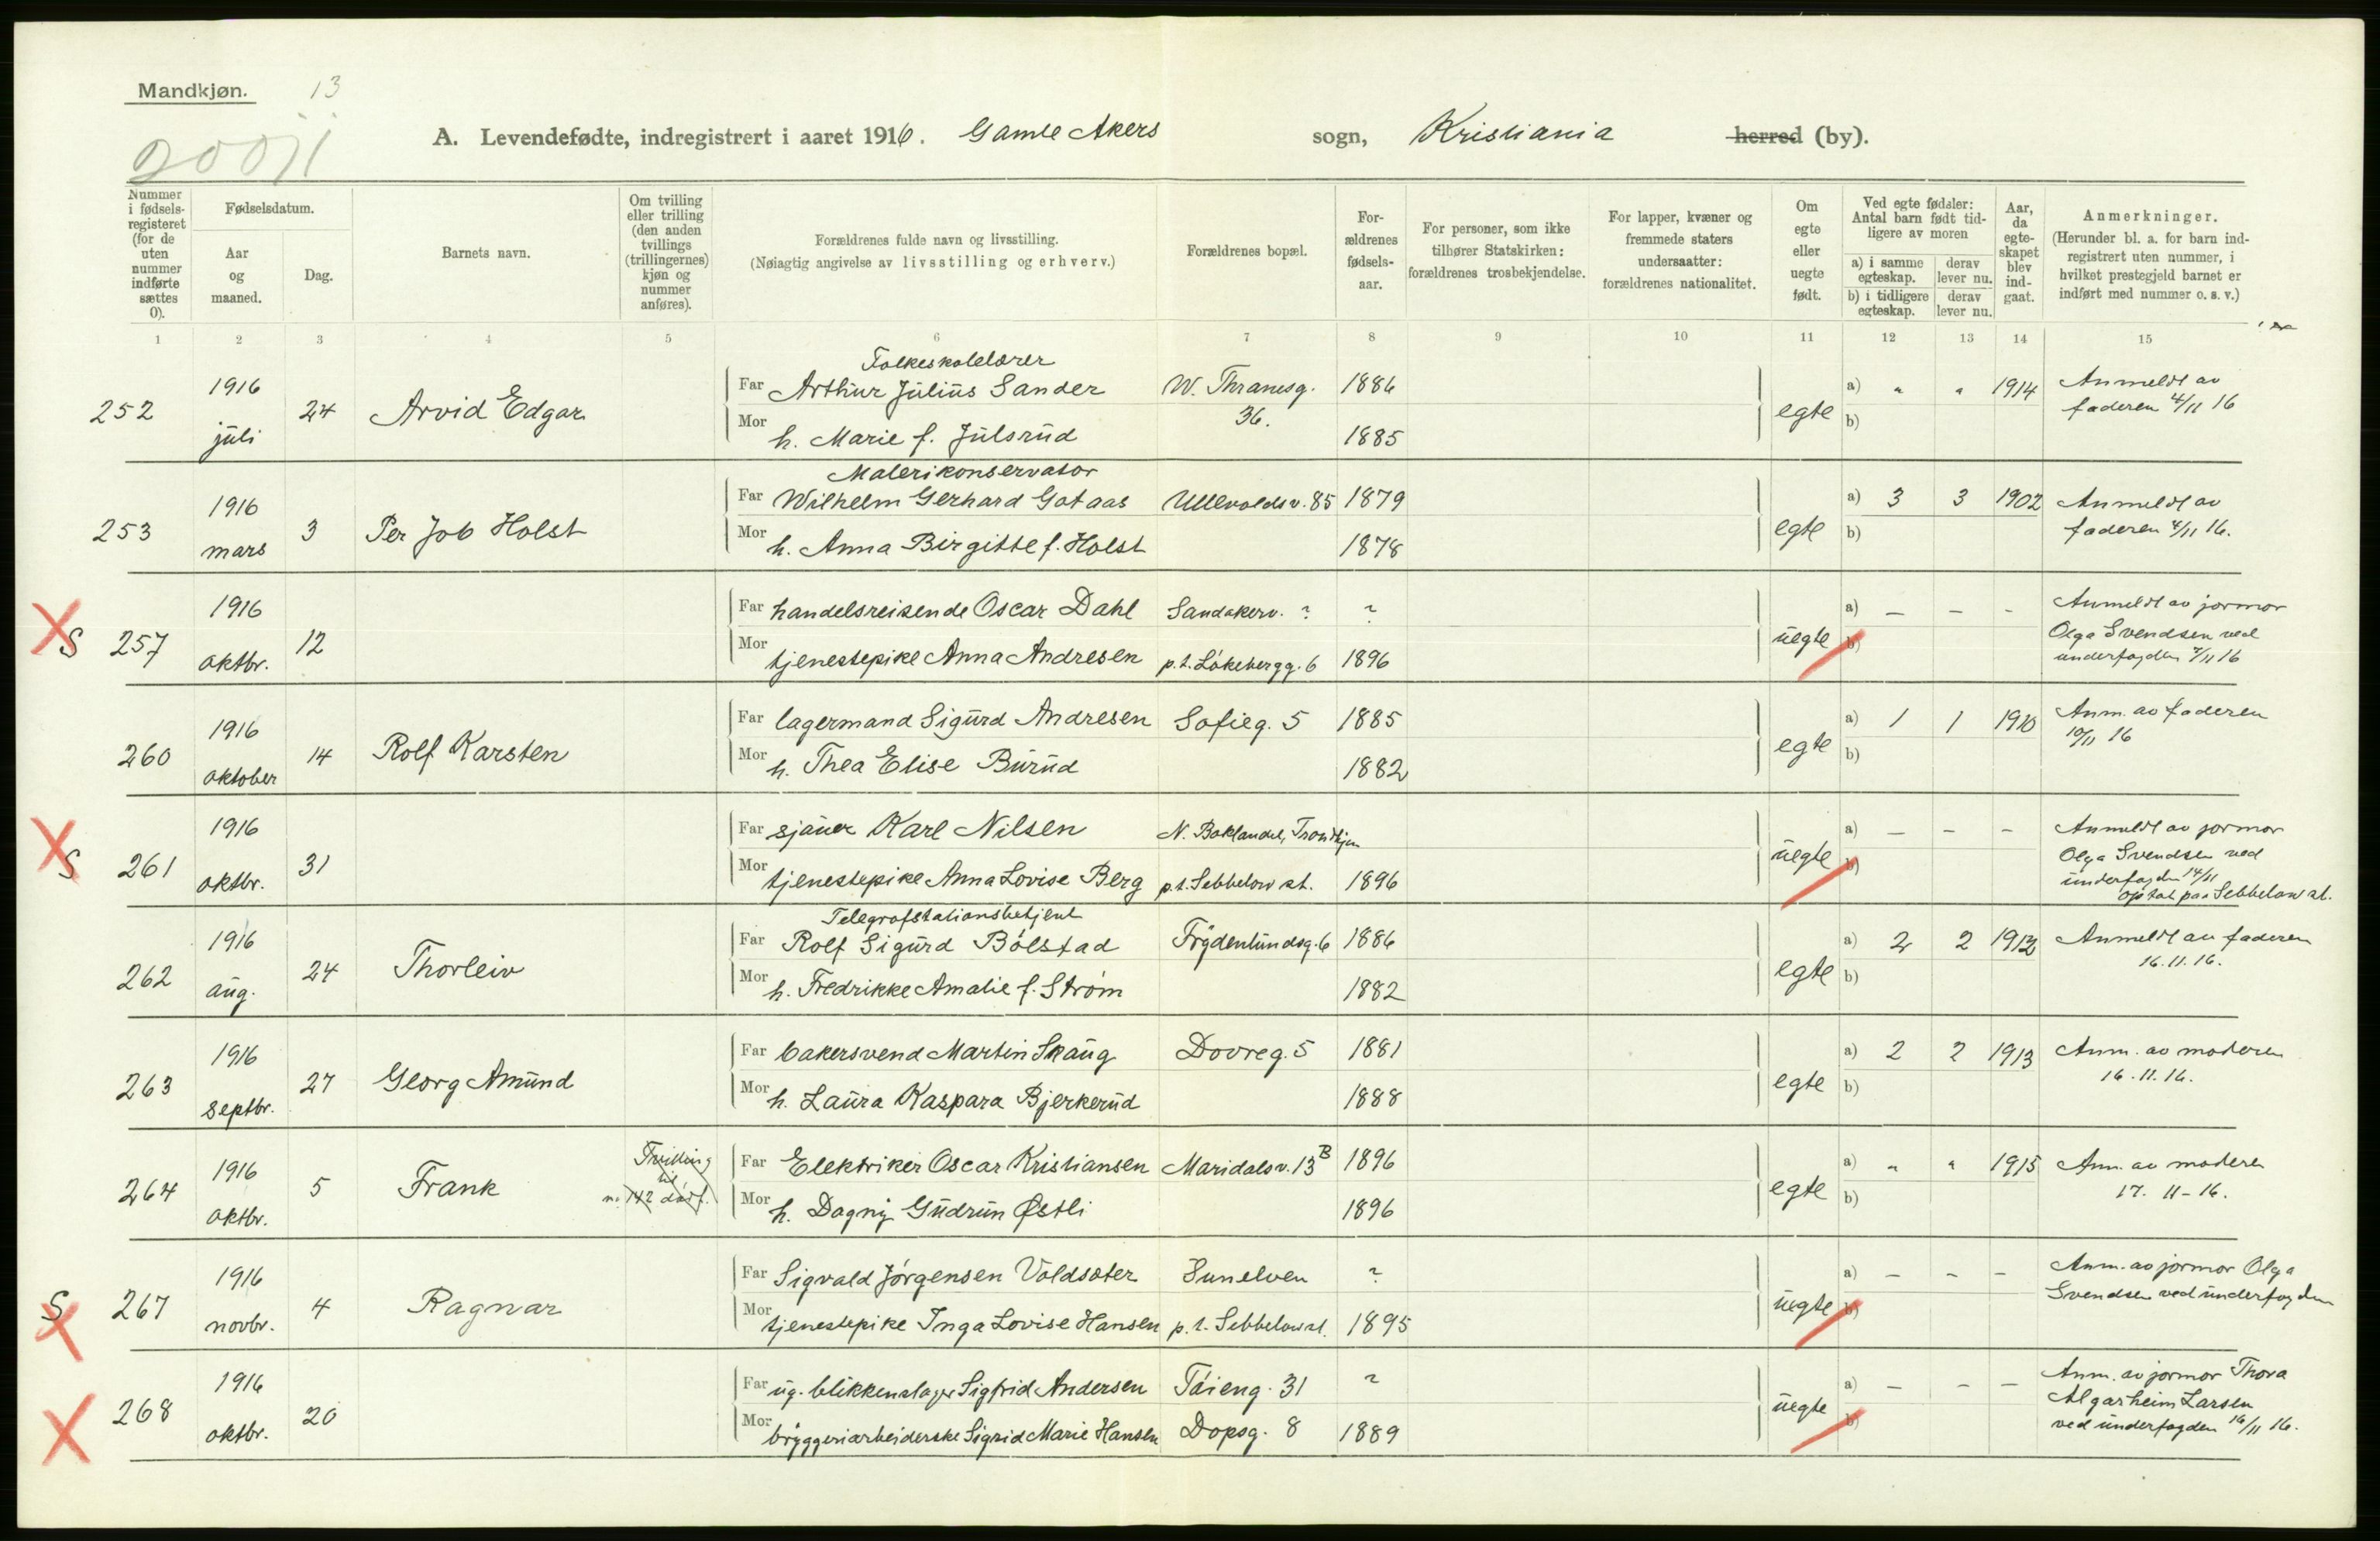 Mandkjøn. 13
A. Levendefødte, indregistrert i aaret 1916. Gamle Akers sogn, Kristiania herred (by).
Nummer i fødselsregisteret (for de uten nummer indførte sættes 0).
Fødselsdatum.
Aar og maaned.
Dag.
Barnets navn.
Om tvilling eller trilling (den anden tvillings (trillingernes) kjøn og nummer anføres).
Forældrenes fulde navn og livsstilling.
(Nøiagtig angivelse av livsstilling og erhverv.)
Forældrenes bopæl.
Forældrenes fødselsaar.
For personer, som ikke tilhører Statskirken: forældrenes trosbekjendelse.
For lapper, kvæner og fremmede staters undersaatter: forældrenes nationalitet.
Om egte eller uegte født.
Ved egte fødsler: Antal barn født tidligere av moren
a) i samme egteskap. derav lever nu.
b) i tidligere egteskap. derav lever nu.
Aar, da egteskapet blev indgaat.
Anmerkninger.
(Herunder bl. a. for barn indregistrert uten nummer, i hvilket prestegjeld barnet er indført med nummer o. s. v.)
1 2 3 4 5 6 7 8 9 10 11 12 13 14 15
Folkeskolelærer
252 1916 juli 24 Arvid Edgar Far Arthur Julius Sander W. Thranesg. 36. 1886 egte a) " " 1914 Anmeldt av faderen 4/11 16
Mor h. Marie f. Julsrud 1885 b)
Malerikonservator
253 1916 mars 3 Per Job Holst Far Wilhelm Gerhard Gotaas Ullevoldsv. 85 1879 egte a) 3 3 1902 Anmeldt av faderen 4/11 16.
Mor h. Anna Birgitte f. Holst 1878 b)
S 257 1916 oktbr. 12 Far handelsreisende Oscar Dahl Sandakerv. ? ? uegte a) – – – Anmeldt av jormor Olga Svendsen ved underfogden 7/11 16
Mor tjenestepike Anna Andresen p.t. Løkebergg. 6 1896 b)
260 1916 oktober 14 Rolf Karsten Far lagermand Sigurd Andresen Sofieg. 5 1885 egte a) 1 1 1910 Anm. av faderen 10/11 16
Mor h. Thea Elise Burud 1882 b)
S 261 1916 oktbr. 31 Far sjauer Karl Nilsen N. Baklandet, Trondhjem uegte a) – – – Anmeldt av jormor Olga Svendsen ved underfogden 14/11
Mor tjenestepike Anna Lovise Berg p.t. Sebbelow st. 1896 b) paa Sebbelow st.
Telegrafstationsbetjent
262 1916 aug. 24 Thorleiv Far Rolf Sigurd Bølstad Frydenlundsg. 6 1886 egte a) 2 2 1912 Anmeldt av faderen 16.11.16.
Mor h. Fredrikke Amalie f. Strøm 1882 b)
263 1916 septbr. 27 Georg Amund Far bakersvend Martin Skaug Dovreg. 5 1881 egte a) 2 2 1913 Anm. av moderen 16.11.16.
Mor h. Laura Kaspara Bjerkerud 1888 b)
264 1916 oktbr. 5 Frank Tvilling til n. 142 Far Elektriker Oscar Kristiansen Maridalsv. 13 B 1896 egte a) " " 1915 Ann. av moderen 17. 11-16.
Mor h. Dagny Gudrun Østli 1896 b)
S 267 1916 novbr. 4 Ragnar Far Sigvald Jørgensen Voldsæter Sunelven ? uegte a) – – – Anm. av jormor Olga Svendsen ved underfogden
Mor tjenestepike Inga Lovise Hansen p.t. Sebbelow st. 1895 b)
268 1916 oktbr. 20 Far ug. blikkenslager Sigfrid Andersen Tøieng. 31 ? uegte a) – – – Anm. av jormor Thora Algarheim Larsen ved underfogden 16/11 16.
Mor bryggeriarbeiderske Sigrid Marie Hansen Dopsg. 8 1889 b)